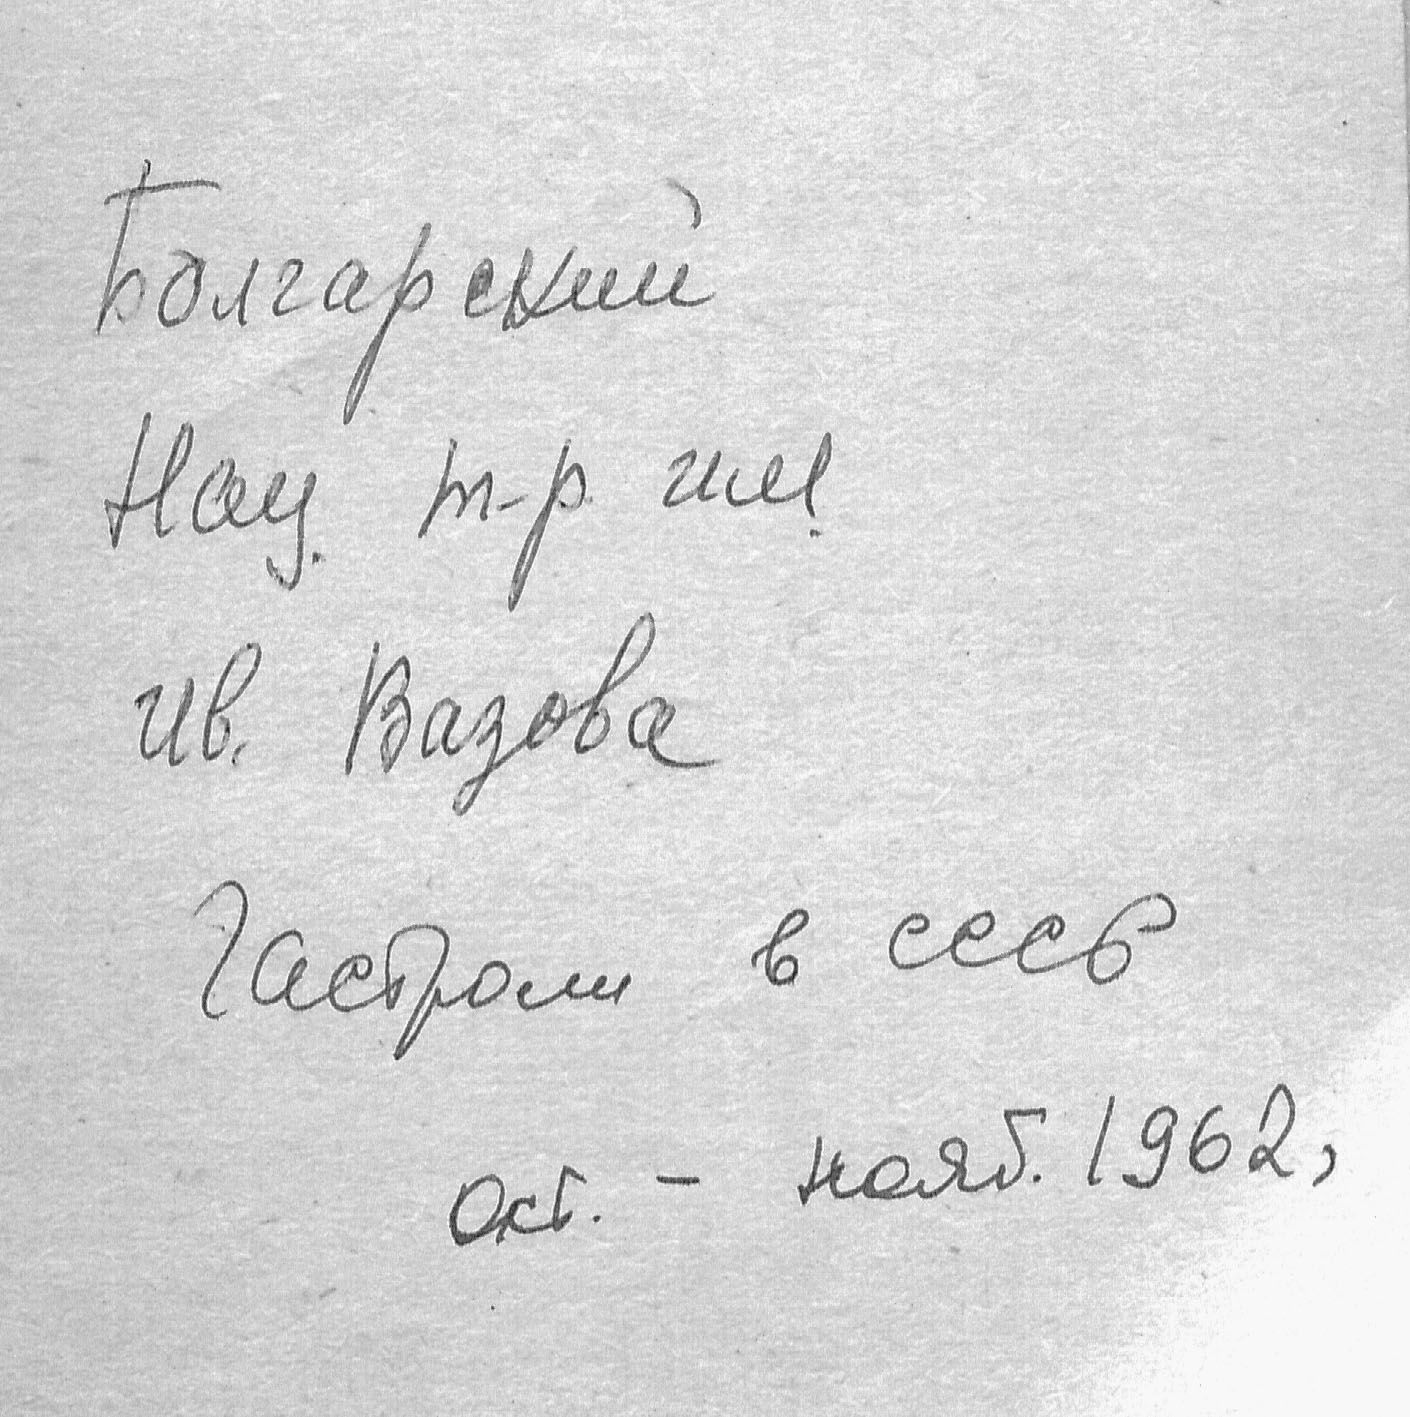 Болгарский
Нац. т-р им.
Ив. Вазова
Гастроли в СССР
окт. - нояб. 1962,